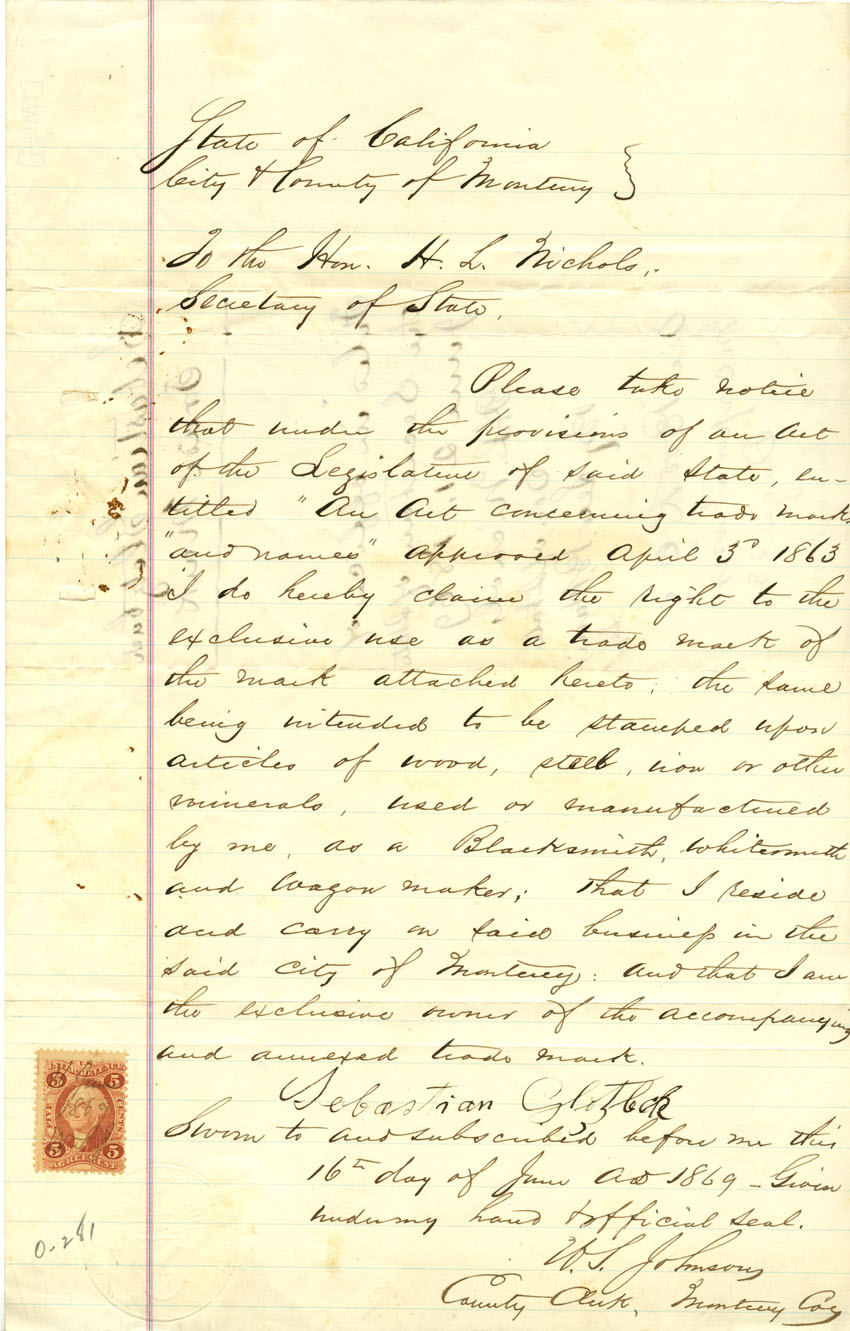 State of California
City & County of Monterey }
To the Hon. H. L. Nichols,
Secretary of State,
Please take notice
that under the provisions of an Act
of the Legislature of said State, en-
titled "An Act concerning trade marks
"and names" approved April 3d 1863
I do hereby claim the right to the
exclusive use as a trade mark of
the mark attached hereto; the same
being intended to be stamped upon
articles of wood, steel, iron or other
minerals, used or manufactured
by me, as a Blacksmith, Whitesmith
and Wagon maker; that I reside
and carry on said business in the
said City of Monterey: and that I am
the exclusive owner of the accompanying
and annexed trade mark.
Sebastian
Sworn to and subscribed before me this
16th day of June AD 1869 - Given
under my hand & official seal.
W. S. Johnson
County Clerk, Monterey Coy
INTER. REVENUE
5 5
FIVE CENTS
5 5
AGREEMENT
0-281